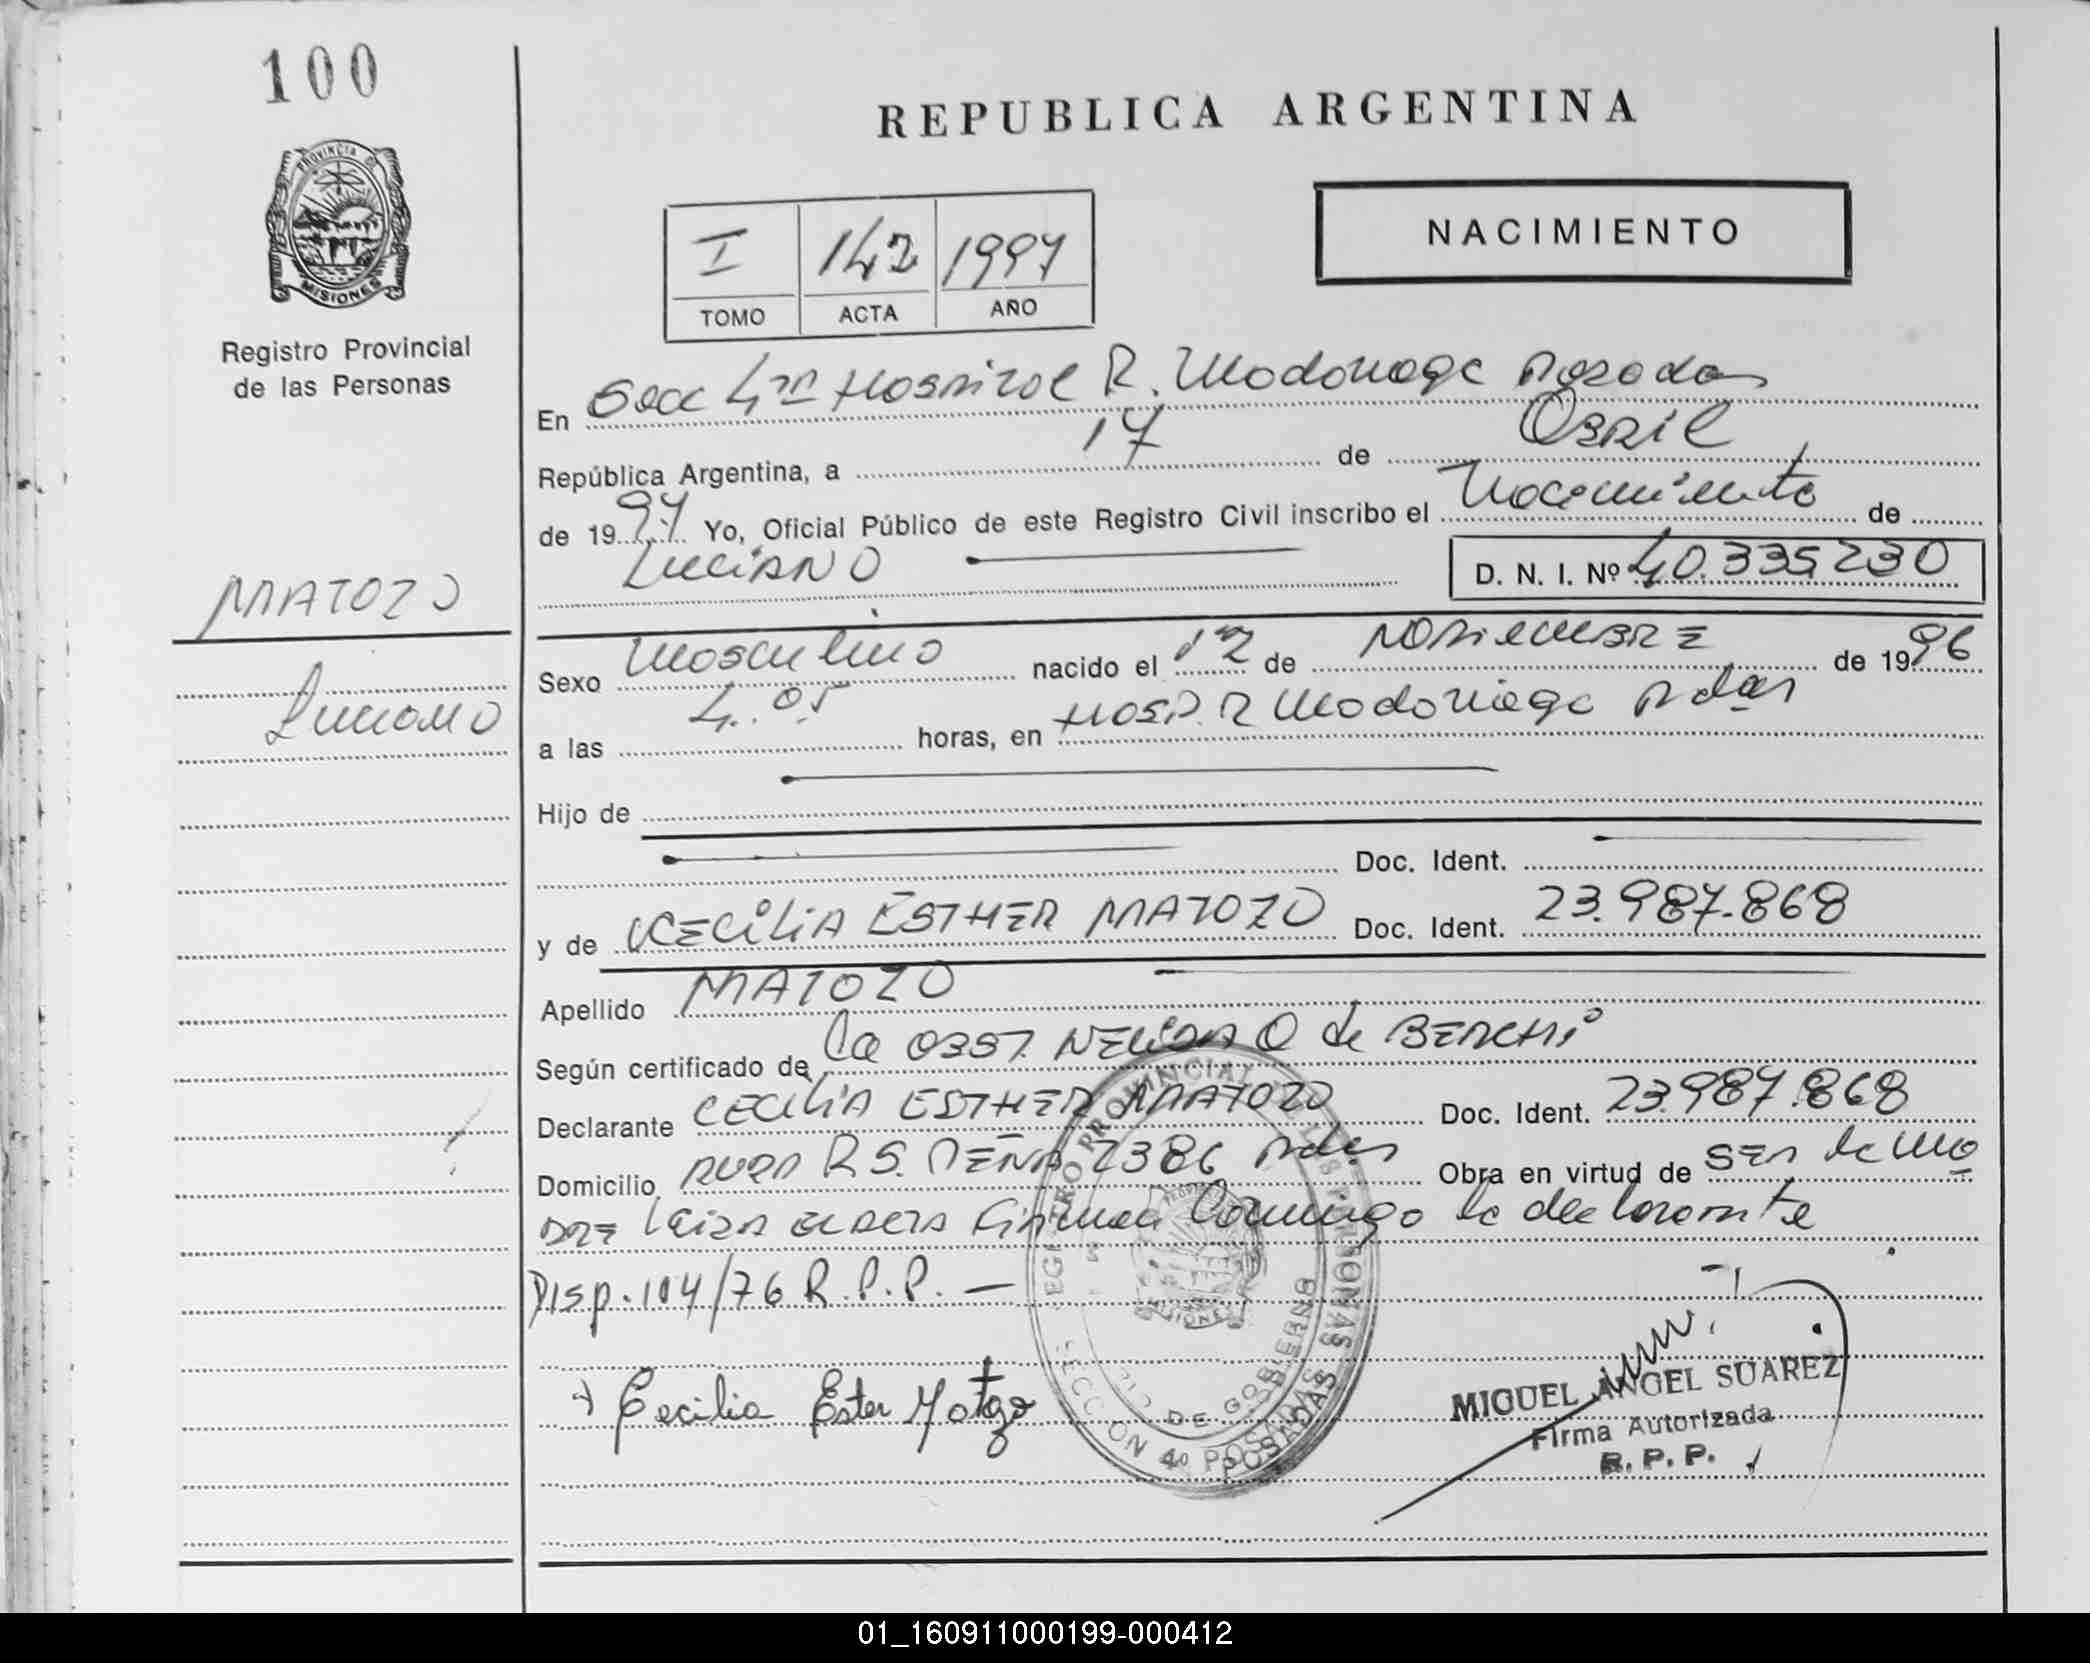 100
REPUBLICA ARGENTINA
PROVINCIA DE
MISIONES
NACIMIENTO
I 142 1997
TOMO ACTA AÑO
Registro Provincial
de las Personas
En Secc 4ta Hospital R. Madariaga Posadas
República Argentina, a 17 de Abril
de 1997 Yo, Oficial Público de este Registro Civil inscribo el Nacimiento de
LUCIANO D. N. I. Nº 40.335230
MATOZO
Luciano
Sexo Masculino nacido el 12 de NOViEMBRE de 1996
a las 4.05 horas, en HOSP. R Madariaga Pdas
Hijo de
Doc. Ident.
y de CECiLiA ESTHER MATOZO Doc. Ident. 23.987.868
Apellido MATOZO
Según certificado de la OBST. NELiDA O de BERCHi
Declarante CECiLiA ESTHER MATOZO Doc. Ident. 23.987.868
Domicilio R S. PEÑA 2386 Pdas Obra en virtud de SER la MA
DRE la declarante
Disp. 104/76 R.P.P. —
Cecilia Ester Matozo
REGISTRO PROVINCIAL DE LAS PERSONAS
DE GOBIERNO
SECCION 4º POSADAS
MIGUEL ANGEL SUAREZ
Firma Autorizada
R. P. P.
01_160911000199-000412